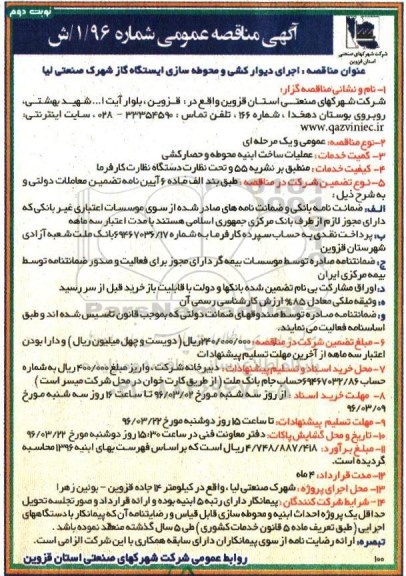 نوبت دوم
آگهی مناقصه عمومی شماره ۱/۹۶/ش
شرکت شهرکهای صنعتی
استان قزوین
عنوان مناقصه : اجرای دیوار کشی و محوطه سازی ایستگاه گاز شهرک صنعتی لیا
۱- نام و نشانی مناقصه گزار:
شرکت شهرکهای صنعتی استان قزوین واقع در : قزوین ، بلوار آیت ا... شهید بهشتی،
روبروی بوستان دهخدا ، شماره ۱۶۶ ، تلفن تماس : ۳۳۳۵۴۵۹۰ – ۰۲۸ ، سایت اینترنتی:
www.qazviniec.ir
۲-نوع مناقصه: عمومی و یک مرحله ای
۳- کمیت خدمات : عملیات ساخت ابنیه محوطه و حصارکشی
۴- کیفیت خدمات : منطبق بر نشریه ۵۵ و تحت نظارت دستگاه نظارت کارفرما
۵- نوع تضمین شرکت در مناقصه : طبق بند الف ماده ۶ آیین نامه تضمین معاملات دولتی و
به شرح ذیل :
الف: ضمانت نامه بانکی و ضمانتنامه های صادر شده از سوی موسسات اعتباری غیر بانکی که
دارای مجوز لازم از طرف بانک مرکزی جمهوری اسلامی هستند با مدت اعتبار سه ماهه
ب: پرداخت نقدی به حساب سپرده کارفرما به شماره ۶۹۴۶۷۰۳۶/۱۷ بانک ملت شعبه آزادی
شهرستان قزوین
ج: ضمانتنامه صادره توسط موسسات بیمه گر دارای مجوز برای فعالیت و صدور ضمانتنامه توسط
بیمه مرکزی ایران
د: اوراق مشارکت بی نام تضمین شده بانکها و دولت با قابلیت باز خرید قبل از سر رسید
ه: وثیقه ملکی معادل ۸۵٪ ارزش کارشناسی رسمی آن
و: ضمانتنامه صادره توسط صندوقهای ضمانت دولتی که بموجب قانون تاسیس شده اند و طبق
اساسنامه فعالیت می نمایند.
۶- مبلغ تضمین شرکت در مناقصه: ۲۴۰/۰۰۰/۰۰۰ ریال ( دویست و چهل میلیون ریال ) و دارا بودن
اعتبار سه ماهه از آخرین مهلت تسلیم پیشنهادات
۷- محل خرید اسناد و تسلیم پیشنهادات : دبیرخانه شرکت . واریز مبلغ ۴۰۰/۰۰۰ ریال به شماره
حساب ۶۹۴۶۷۰۳۲/۸۶ حساب جام بانک ملت ( از طریق کارت خوان در محل شرکت میسر است )
۸- مهلت خرید اسناد : از روز سه شنبه مورخ ۹۶/۰۳/۰۲ تا ساعت ۱۶ روز سه شنبه مورخ
۹۶/۰۳/۰۹
۹- مهلت تسلیم پیشنهادات: تا ساعت ۱۵ روز دوشنبه مورخ ۹۶/۰۳/۲۲
۱۰- تاریخ و محل گشایش پاکات: دفتر معاونت فنی در ساعت ۱۵:۳۰ روز دوشنبه مورخ ۹۶/۰۳/۲۲
۱۱- مبلغ برآورد: ۴/۷۴۸/۸۸۷/۴۱۸ ریال است که براساس فهرست بهای ابنیه ۱۳۹۶ محاسبه
گردیده است.
۱۲- مدت قرارداد: ۴ ماه
۱۳- محل اجرای پروژه : شهرک صنعتی لیا ، واقع در کیلومتر ۱۴ جاده قزوین – بوئین زهرا
۱۴- شرایط شرکت کنندگان : پیمانکار دارای رتبه ۵ ابنیه بوده و ارائه قرارداد و صورتجلسه تحویل
حداقل یک پروژه احداث ابنیه و محوطه سازی قابل قیاس و رضایتنامه آن که پیمانکار با دستگاههای
اجرایی ( طبق تعریف ماده ۵ قانون خدمات کشوری ) طی ۵ سال گذشته منعقد نموده باشد .
تبصره: ارائه رضایت نامه از سوی پیمانکاران دارای سابقه همکاری با این شرکت الزامی است.
۱۰۰ روابط عمومی شرکت شهرکهای صنعتی استان قزوین